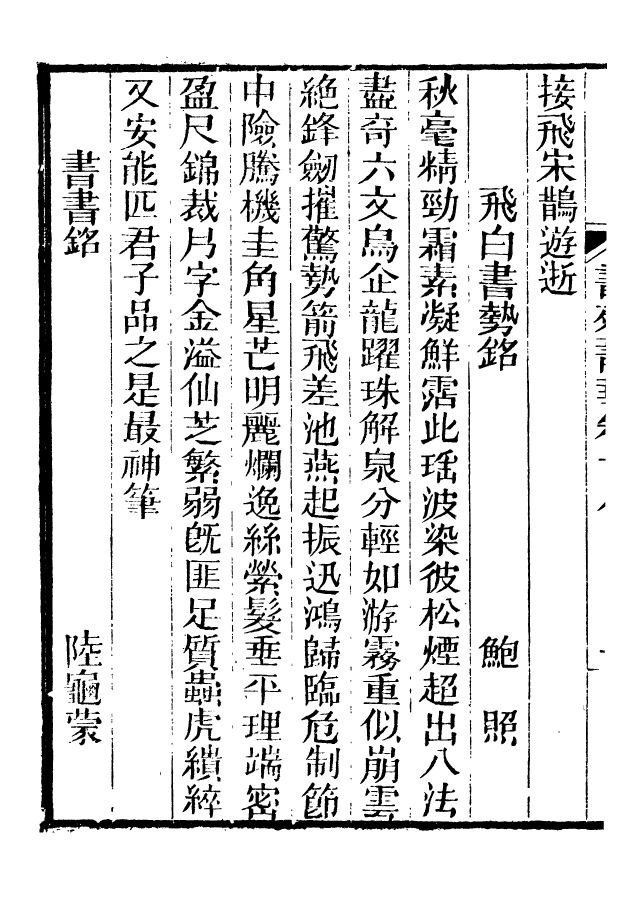 接飛宋鵲遊逝
飛白書勢銘　鮑照
秋毫精勁霜素凝鮮霑此瑶波染彼松煙超出八法
盡奇六文鳥企龍躍珠解泉分輕如游霧重似崩雲
絶鋒劒摧驚勢箭飛差池燕起振迅鴻歸臨危制節
中險騰機圭角星芒明麗爛逸絲縈髮垂平理端密
盈尺錦裁片字金溢仙芝繁弱旣匪足質蟲虎繢綷
又安能匹君子品之是最神筆
書書銘　陸龜蒙